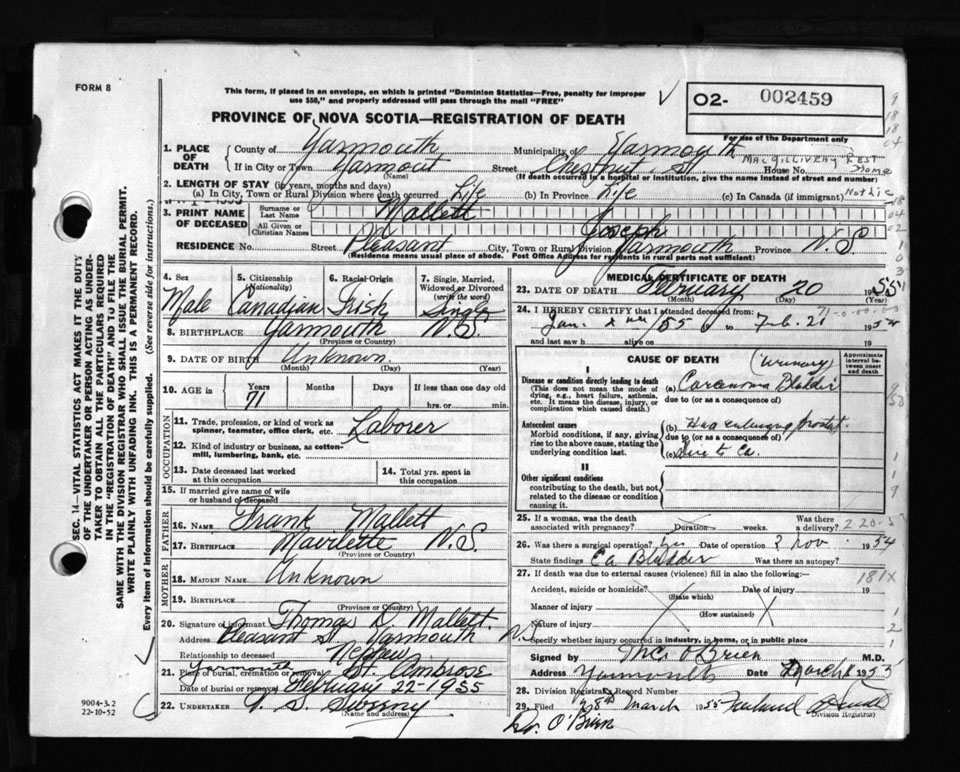 FORM 8
This form, if placed in an envelope, on which is printed "Dominion Statistics—Free, penalty for improper
use $50," and properly addressed will pass through the mail "FREE"
PROVINCE OF NOVA SCOTIA—REGISTRATION OF DEATH
O2- 002459
For use of the Department only
1. PLACE OF DEATH
County of Yarmouth Municipality of Yarmouth
MacGillivery Rest Home
If in City or Town Yarmout Street Chestnut St. House No.
(Name) (If death occurred in a hospital or institution, give the name instead of street and number)
2. LENGTH OF STAY (in years, months and days)
(a) In City, Town or Rural Division where death occurred Life (b) In Province Life (c) In Canada (if immigrant)
3. PRINT NAME OF DECEASED
Surname or Last Name Mallett
All Given or Christian Names Joseph
RESIDENCE No. Street Pleasant City, Town or Rural Division Yarmouth Province N.S
(Residence means usual place of abode. Post Office Address for residents in rural parts not sufficient)
4. Sex Male
5. Citizenship (Nationality) Canadian
6. Racial Origin Irish
7. Single, Married, Widowed or Divorced (write the word) Single
8. BIRTHPLACE Yarmouth N.S.
(Province or Country)
9. DATE OF BIRTH Unknown.
(Month) (Day) (Year)
10. AGE in Years 71 Months Days If less than one day old
hrs. or min.
OCCUPATION
11. Trade, profession, or kind of work as spinner, teamster, office clerk, etc. Laborer
12. Kind of industry or business, as cotton-mill, lumbering, bank, etc.
13. Date deceased last worked at this occupation
14. Total yrs. spent in this occupation
15. If married give name of wife or husband of deceased
FATHER
16. NAME Frank Mallett
17. BIRTHPLACE N.S.
(Province or Country)
MOTHER
18. MAIDEN NAME Unknown
19. BIRTHPLACE
(Province or Country)
20. Signature of informant Thomas D. Mallett.
Address Pleasant St. Yarmouth N.S.
Relationship to deceased Nephew
21. Place of burial, cremation or removal Yarmouth St. Ambrose
Date of burial or removal February 22-1955
22. UNDERTAKER Sweeny
(Name and address)
MEDICAL CERTIFICATE OF DEATH
23. DATE OF DEATH February 20 1955
(Month) (Day) (Year)
24. I HEREBY CERTIFY that I attended deceased from:
Jan. to Feb. 19
and last saw h alive on 19
CAUSE OF DEATH
Approximate interval between onset and death
I
Disease or condition directly leading to death
(This does not mean the mode of dying, e.g., heart failure, asthenia, etc. It means the disease, injury, or complication which caused death.)
(urinary)
(a) Carcinoma Bladder
due to (or as a consequence of)
Antecedent causes
Morbid conditions, if any, giving rise to the above cause, stating the underlying condition last.
(b) Had enlarging prostat.
due to (or as a consequence of)
(c) due to Ca.
II
Other significant conditions
contributing to the death, but not related to the disease or condition causing it.
25. If a woman, was the death associated with pregnancy? Duration weeks. Was there a delivery?
2-20-5
26. Was there a surgical operation? Yes Date of operation 2 Nov. 1954
State findings Ca Bladder Was there an autopsy?
27. If death was due to external causes (violence) fill in also the following:—
181X
Accident, suicide or homicide? Date of injury 19
(State which)
Manner of injury
(How sustained)
Nature of injury
Specify whether injury occurred in industry, in home, or in public place
Signed by O'Brien M.D.
Address Yarmouth Date March 1955
28. Division Registrar's Record Number
29. Filed 8th March 1955
Division Registrar)
Dr. O'Brien
SEC. 14—VITAL STATISTICS ACT MAKES IT THE DUTY
OF THE UNDERTAKER OR PERSON ACTING AS UNDER-
TAKER TO OBTAIN ALL THE PARTICULARS REQUIRED
IN THE "REGISTRATION OF DEATH" AND TO FILE THE
SAME WITH THE DIVISION REGISTRAR WHO SHALL ISSUE THE BURIAL PERMIT.
WRITE PLAINLY WITH UNFADING INK. THIS IS A PERMANENT RECORD.
Every item of information should be carefully supplied. (See reverse side for instructions.)
9004-3.2
22-10-52